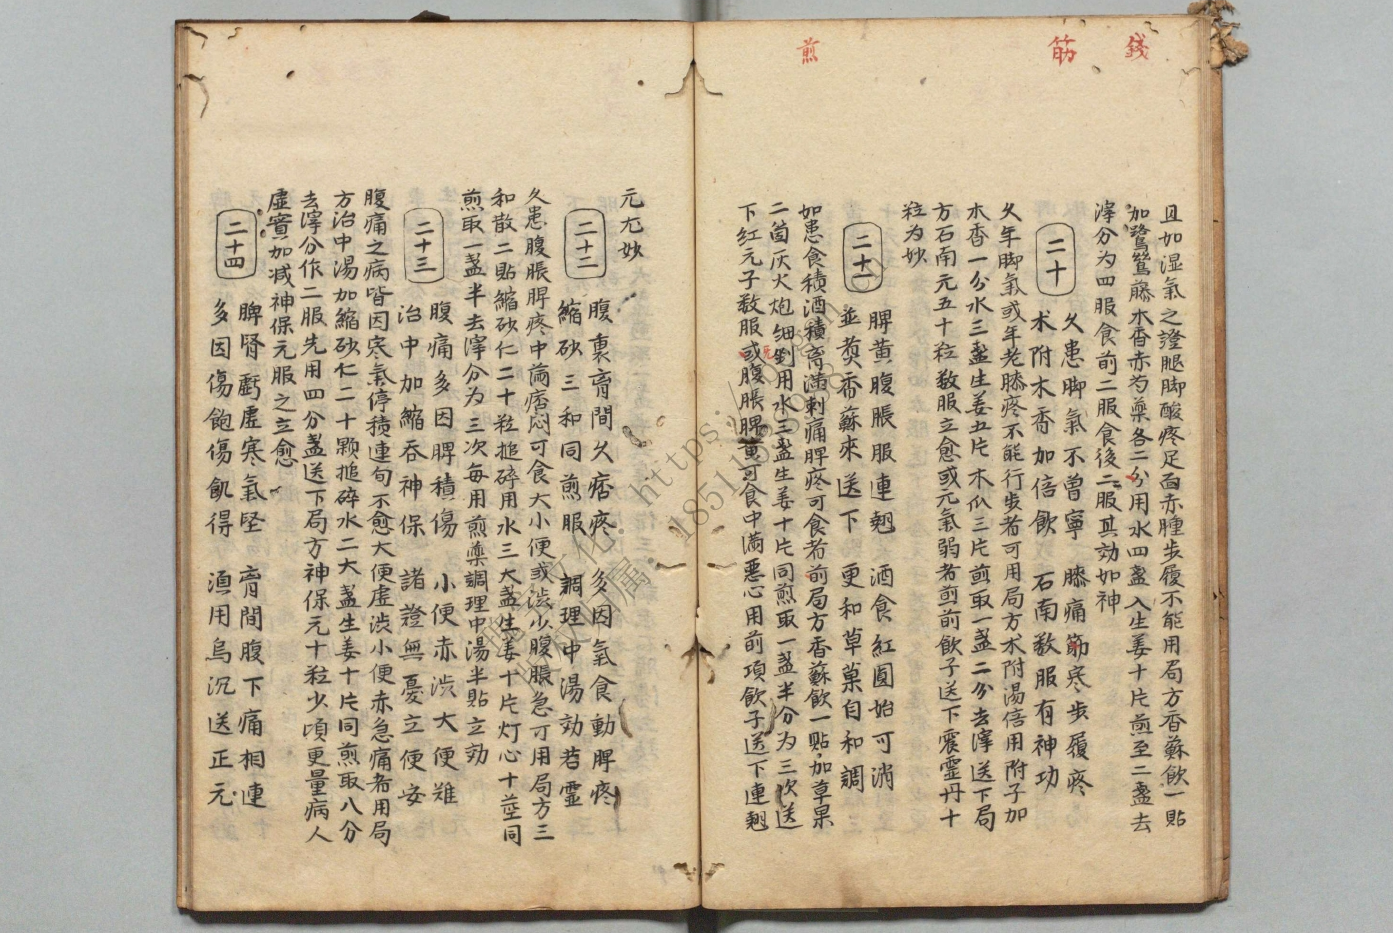 錢
筋
煎
且如湿氣之證腿脚酸疼足面赤腫步履不能用局方香蘇飲一貼
加鷺鷥藤木香赤芍藥各二分用水四盞入生姜十片煎至二盞去
滓分为四服食前二服食後二服其効如神
二十
久患脚氣不曾寧 膝痛筋寒步履疼
术附木香加倍飲 石南数服有神功
久年脚氣或年老膝疼不能行步者可用局方术附湯倍用附子加
木香一分水三盞生姜五片木瓜三片煎取一盞二分去滓送下局
方石南元五十粒数服立愈或元氣弱者煎前飲子送下震霊丹十
粒为妙
二十一
脾黄腹脹服連翹 酒食紅圓始可消
並煎香蘇來送下 更和草菓自和調
如患食積酒積膏滿刺痛脾疼可食者前局方香蘇飲一貼加草果
二箇灰火炮細剉用水三盞生姜十片同煎取一盞半分为三次送
下红元子数服或腹脹脾黄可食中滿悪心用前項飲子送下連翹
元尤妙
二十二
腹裏膏間久痞疼 多因氣食動脾疼
縮砂三和同煎服 調理中湯効若霊
久患腹脹脾疼中滿痞悶可食大小便或渋少腹脹急可用局方三
和散二貼縮砂仁二十粒搥碎用水三大盞生姜十片灯心十莖同
煎取一盞半去滓分为三次每用煎藥調理中湯半貼立効
二十三
腹痛多因脾積傷 小便赤渋大便難
治中加縮吞神保 諸證無憂立便安
腹痛之病皆因寒氣停積連旬不愈大便虚渋小便赤急痛者用局
方治中湯加縮砂仁二十顆搥碎水二大盞生姜十片同煎取八分
去滓分作二服先用四分盞送下局方神保元十粒少頃更量病人
虚實加减神保元服之立愈
二十四
脾腎虧虚寒氣堅 膏間腹下痛相連
多因傷飽傷飢得 湏用烏沉送正元